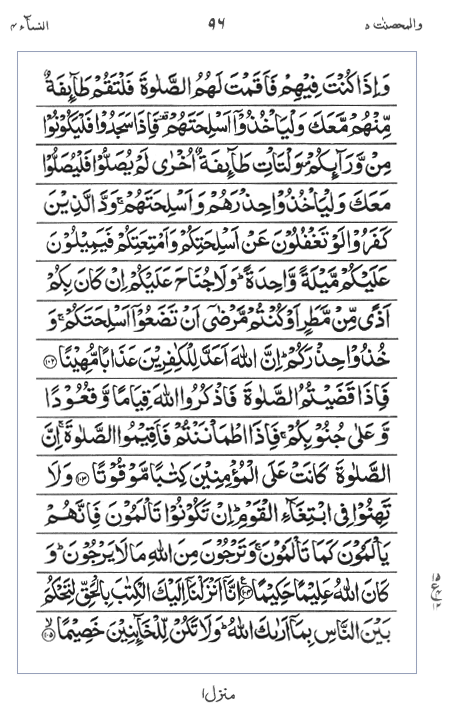 والمحصنت ٥ ٩٦ النسآء ٤
وَاِذَا كُنْتَ فِيْهِمْ فَاَقَمْتَ لَهُمُ الصَّلٰوةَ فَلْتَقُمْ طَآئِفَةٌ
مِّنْهُمْ مَّعَكَ وَلْيَاْخُذُوْۤا اَسْلِحَتَهُمْ ۫ فَاِذَا سَجَدُوْا فَلْيَكُوْنُوْا
مِنْ وَّرَآئِكُمْ ۪ وَلْتَاْتِ طَآئِفَةٌ اُخْرٰى لَمْ يُصَلُّوْا فَلْيُصَلُّوْا
مَعَكَ وَلْيَاْخُذُوْا حِذْرَهُمْ وَاَسْلِحَتَهُمْ ۚ وَدَّ الَّذِيْنَ
كَفَرُوْا لَوْ تَغْفُلُوْنَ عَنْ اَسْلِحَتِكُمْ وَاَمْتِعَتِكُمْ فَيَمِيْلُوْنَ
عَلَيْكُمْ مَّيْلَةً وَّاحِدَةً ؕ وَلَا جُنَاحَ عَلَيْكُمْ اِنْ كَانَ بِكُمْ
اَذًى مِّنْ مَّطَرٍ اَوْ كُنْتُمْ مَّرْضٰۤى اَنْ تَضَعُوْۤا اَسْلِحَتَكُمْ ۚ وَ
خُذُوْا حِذْرَكُمْ ؕ اِنَّ اللّٰهَ اَعَدَّ لِلْكٰفِرِيْنَ عَذَابًا مُّهِيْنًا ﴿۱۰۲﴾
فَاِذَا قَضَيْتُمُ الصَّلٰوةَ فَاذْكُرُوا اللّٰهَ قِيَامًا وَّقُعُوْدًا
وَّعَلٰى جُنُوْبِكُمْ ۚ فَاِذَا اطْمَاْنَنْتُمْ فَاَقِيْمُوا الصَّلٰوةَ ۚ اِنَّ
الصَّلٰوةَ كَانَتْ عَلَى الْمُؤْمِنِيْنَ كِتٰبًا مَّوْقُوْتًا ﴿۱۰۳﴾ وَلَا
تَهِنُوْا فِى ابْتِغَآءِ الْقَوْمِ ؕ اِنْ تَكُوْنُوْا تَاْلَمُوْنَ فَاِنَّهُمْ
يَاْلَمُوْنَ كَمَا تَاْلَمُوْنَ ۚ وَتَرْجُوْنَ مِنَ اللّٰهِ مَا لَا يَرْجُوْنَ ؕ وَ
كَانَ اللّٰهُ عَلِيْمًا حَكِيْمًا ﴿۱۰۴﴾ اِنَّاۤ اَنْزَلْنَاۤ اِلَيْكَ الْكِتٰبَ بِالْحَقِّ لِتَحْكُمَ
بَيْنَ النَّاسِ بِمَاۤ اَرٰىكَ اللّٰهُ ؕ وَلَا تَكُنْ لِّلْخَآئِنِيْنَ خَصِيْمًا ﴿۱۰۵﴾
۱۵
ع ۴
۱۲
منزل ۱